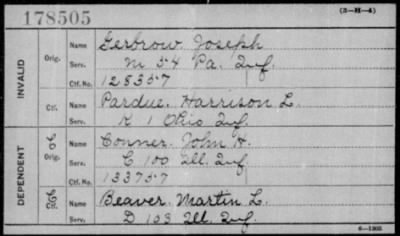 178505
(3-H-4)
INVALID
Orig.
Name Gerbrow Joseph
Serv. M 54 Pa. Inf.
Ctf. No. 128357
Ctf.
Name Pardue, Harrison L.
Serv. K 1 Ohio Inf.
DEPENDENT
Orig.
Name Conner, John H.
Serv. C 100 Ill. Inf.
Ctf. No. 133757
Ctf.
Name Beaver, Martin L.
Serv. D 103 Ill. Inf.